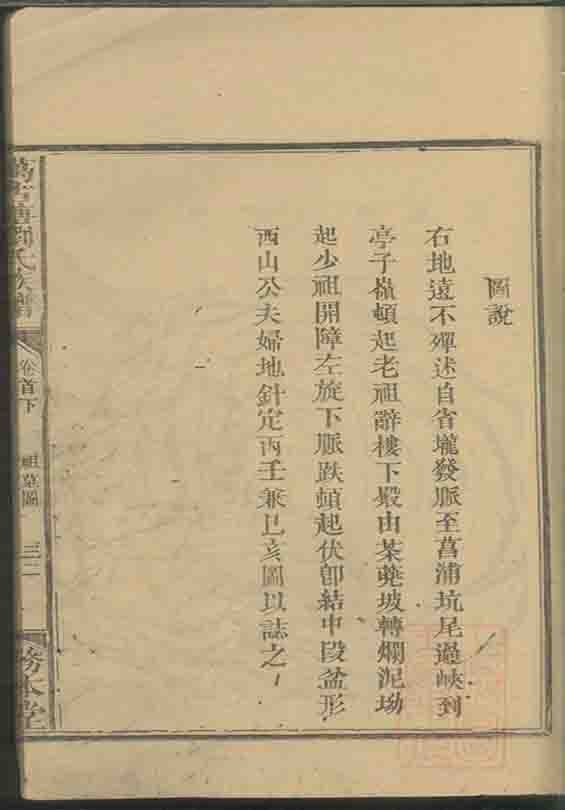 圖說
右地遠不殫述自省壠發脈至菖浦坑尾過峽到
亭子嶺頓起老祖辭樓下殿由茶蕘坡轉爛泥坳
起少祖開障左旋下脈跌頓起伏卽結中段盆形
西山公夫婦地針定丙壬兼巳亥圖以誌之
劉氏族譜
卷首下
祖墓圖
三二
務本堂